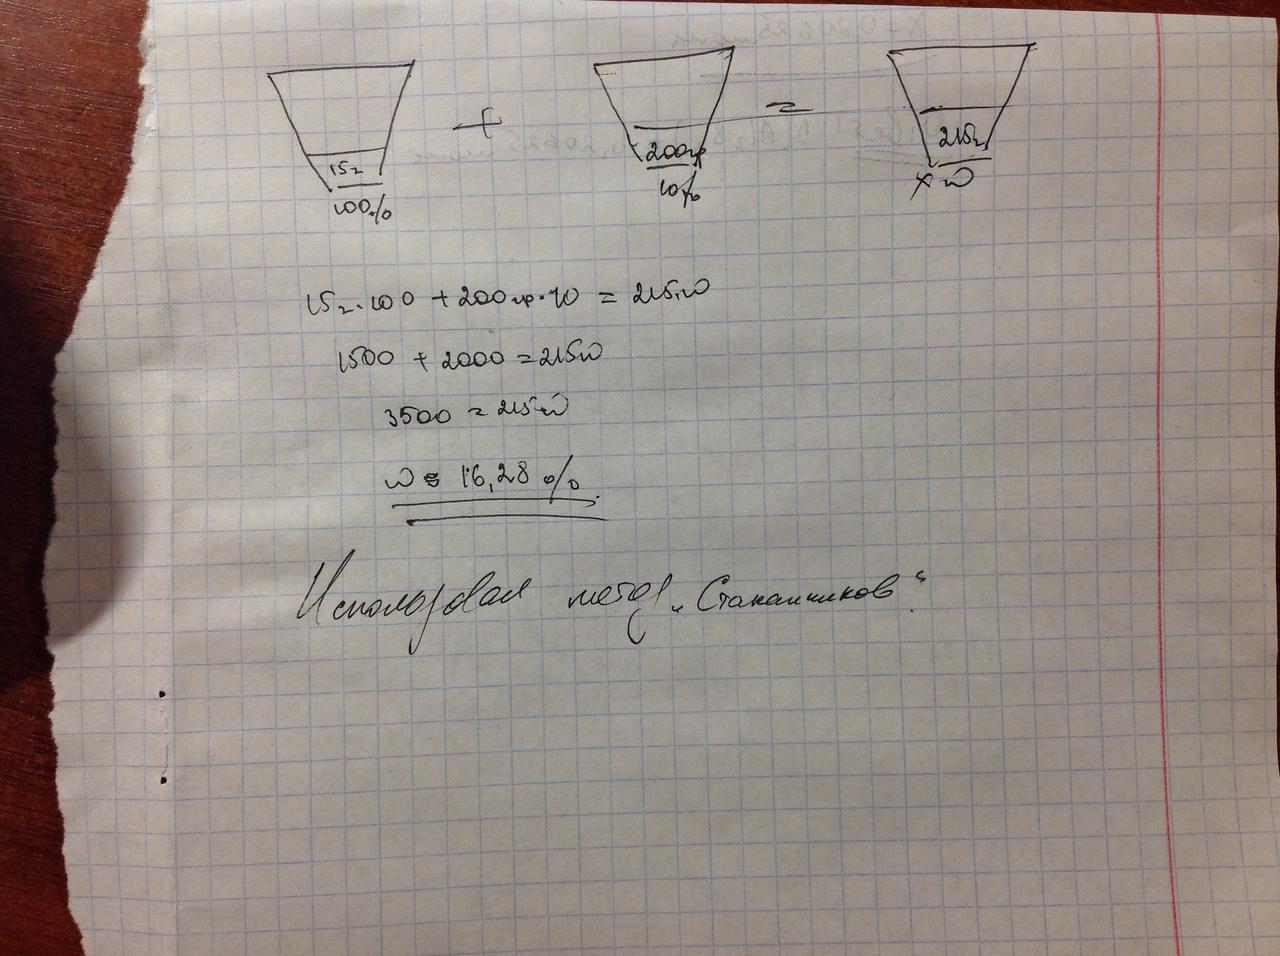 15г + 200гр = 215г
100% 10% x ω
15г·100 + 200гр·10 = 215ω
1500 + 2000 = 215ω
3500 = 215ω
ω ≈ 16,28 %
Использовал метод „Стаканчиков“.